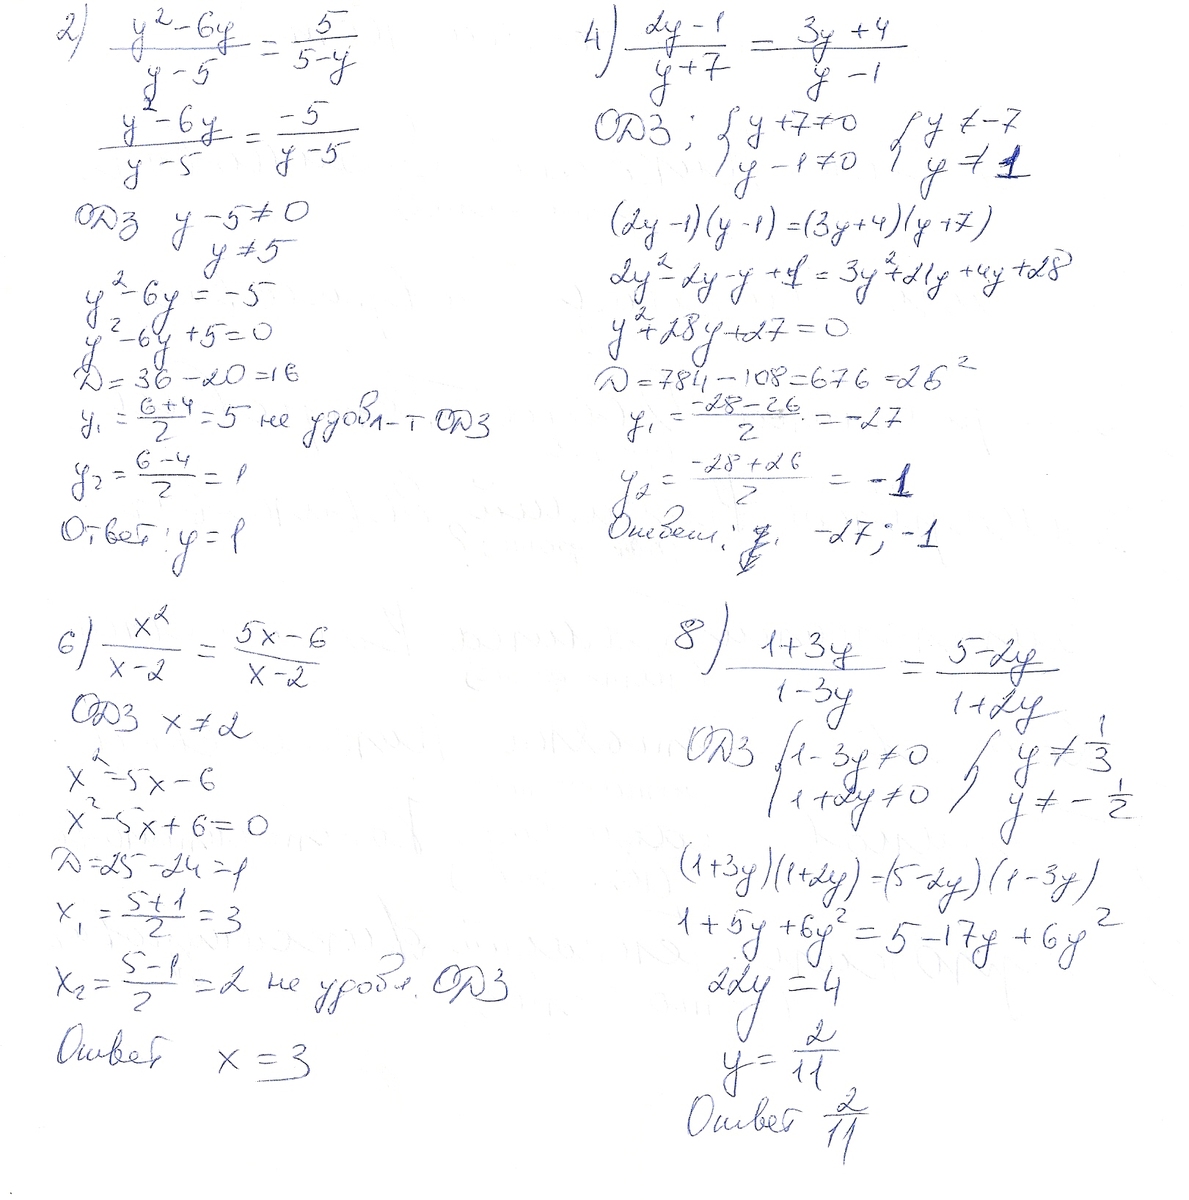 2) (y² - 6y)/(y - 5) = 5/(5 - y)
(y² - 6y)/(y - 5) = -5/(y - 5)
ОДЗ y - 5 ≠ 0
y ≠ 5
y² - 6y = -5
y² - 6y + 5 = 0
Д = 36 - 20 = 16
y₁ = (6+4)/2 = 5 не удовл-т ОДЗ
y₂ = (6-4)/2 = 1
Ответ: y = 1
4) (2y - 1)/(y + 7) = (3y + 4)/(y - 1)
ОДЗ: { y + 7 ≠ 0 { y ≠ -7
y - 1 ≠ 0 y ≠ 1
(2y - 1)(y - 1) = (3y + 4)(y + 7)
2y² - 2y - y + 1 = 3y² + 21y + 4y + 28
y² + 28y + 27 = 0
Д = 784 - 108 = 676 = 26²
y₁ = (-28 - 26)/2 = -27
y₂ = (-28 + 26)/2 = -1
Ответ: -27; -1
6) x²/(x - 2) = (5x - 6)/(x - 2)
ОДЗ x ≠ 2
x² = 5x - 6
x² - 5x + 6 = 0
Д = 25 - 24 = 1
x₁ = (5+1)/2 = 3
x₂ = (5-1)/2 = 2 не удовл. ОДЗ
Ответ x = 3
8) (1 + 3y)/(1 - 3y) = (5 - 2y)/(1 + 2y)
ОДЗ { 1 - 3y ≠ 0 { y ≠ 1/3
1 + 2y ≠ 0 y ≠ -1/2
(1 + 3y)(1 + 2y) = (5 - 2y)(1 - 3y)
1 + 5y + 6y² = 5 - 17y + 6y²
22y = 4
y = 2/11
Ответ 2/11